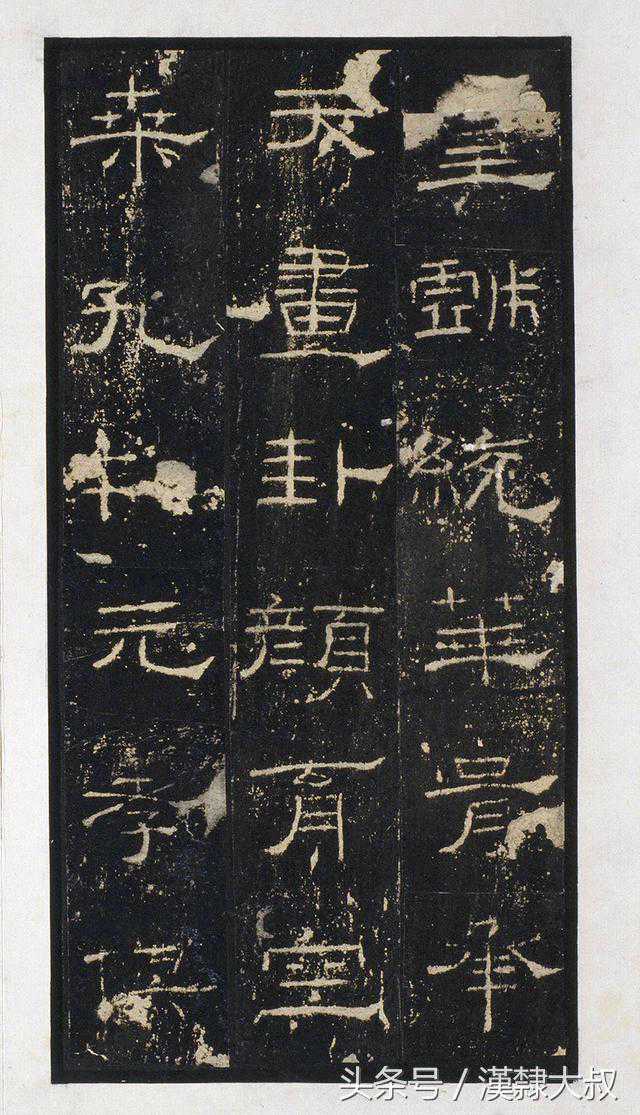 皇戲統華胥承
天畫卦顏育空
桑孔制元孝俱
头条号 / 漢隸大叔